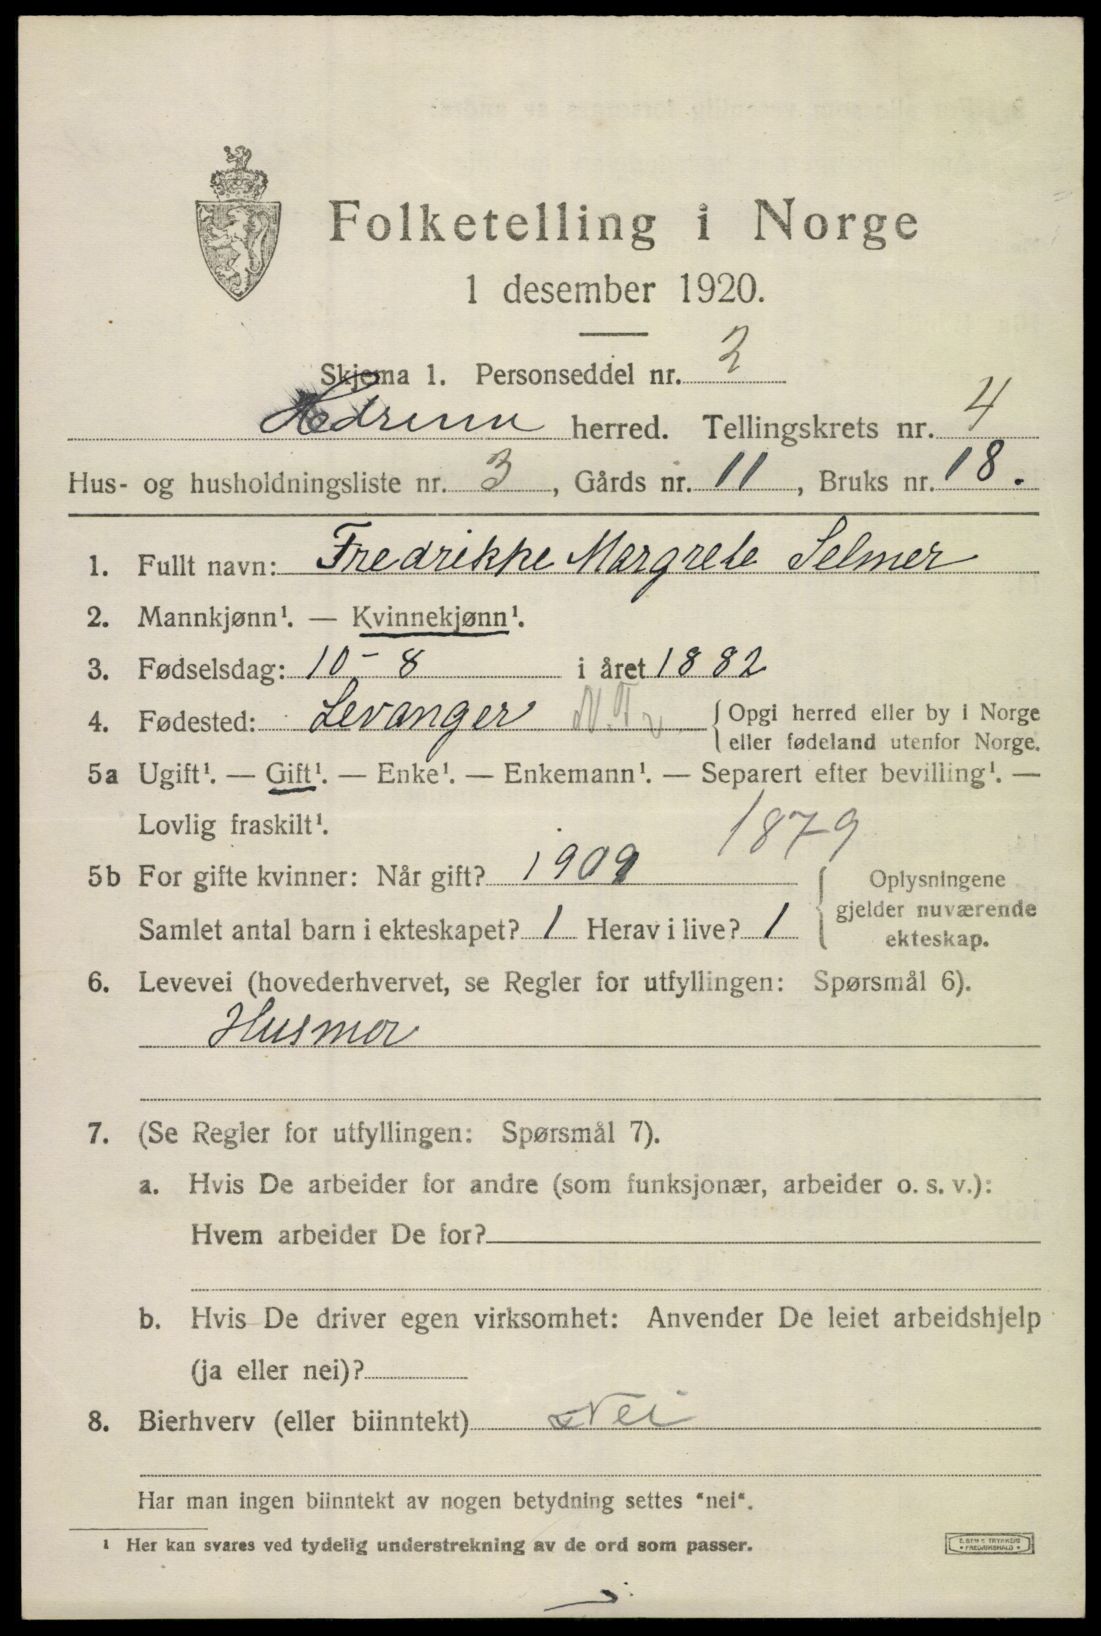 Folketelling i Norge
1 desember 1920.
Skjema 1. Personseddel nr. 2
Hedrum herred. Tellingskrets nr. 4
Hus- og husholdningsliste nr. 3, Gårds nr. 11, Bruks nr. 18.
1. Fullt navn: Fredrikke Margrete Selmer
2. Mannkjønn¹. — Kvinnekjønn¹.
3. Fødselsdag: 10-8 i året 1882
4. Fødested: Levanger N.Tr. Opgi herred eller by i Norge
eller fødeland utenfor Norge.
5a Ugift¹. — Gift¹. — Enke¹. — Enkemann¹. — Separert efter bevilling¹. —
Lovlig fraskilt¹. 1879
5b For gifte kvinner: Når gift? 1909 Oplysningene
gjelder nuværende
Samlet antal barn i ekteskapet? 1 Herav i live? 1 ekteskap.
6. Levevei (hovederhvervet, se Regler for utfyllingen: Spørsmål 6).
Husmor
7. (Se Regler for utfyllingen: Spørsmål 7).
a. Hvis De arbeider for andre (som funksjonær, arbeider o. s. v.):
Hvem arbeider De for?
b. Hvis De driver egen virksomhet: Anvender De leiet arbeidshjelp
(ja eller nei)?
8. Bierhverv (eller biinntekt) Nei
Har man ingen biinntekt av nogen betydning settes "nei".
¹ Her kan svares ved tydelig understrekning av de ord som passer.